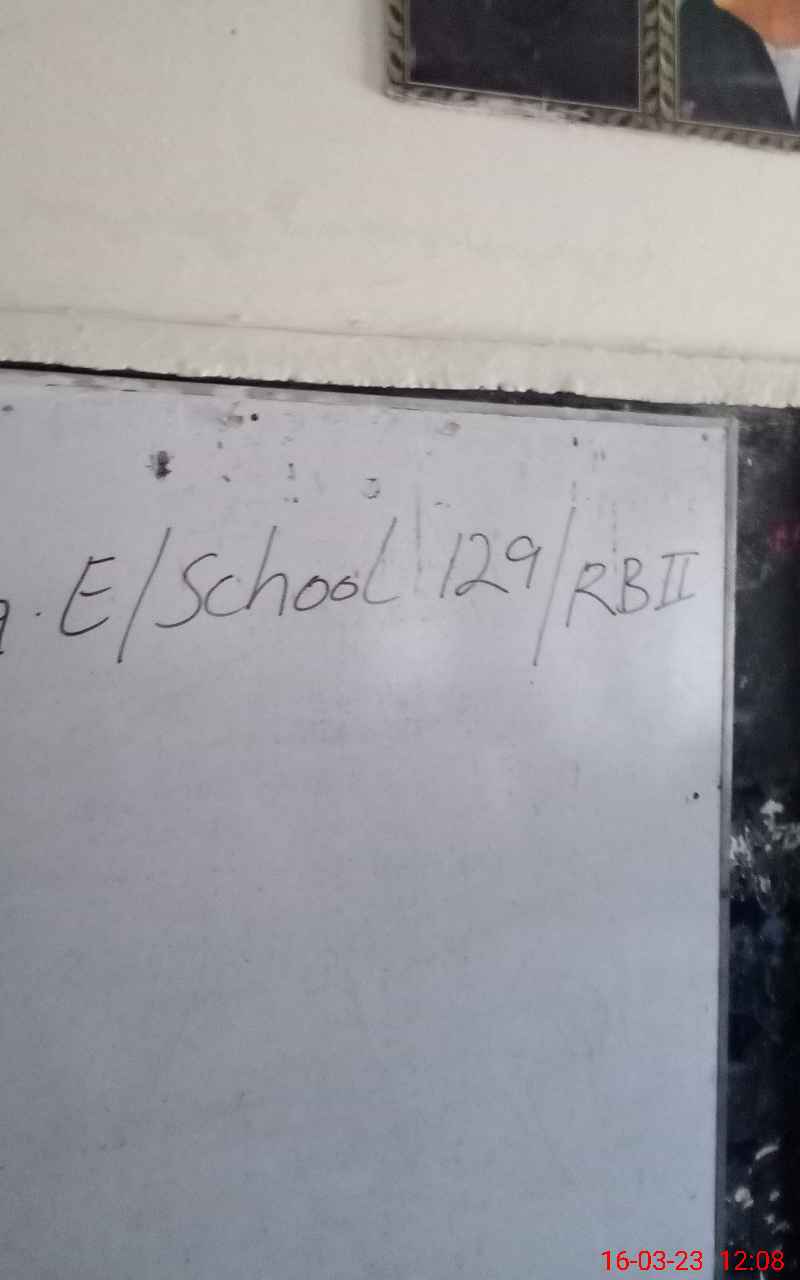 . E/School 129/RBII
16-03-23 12:08